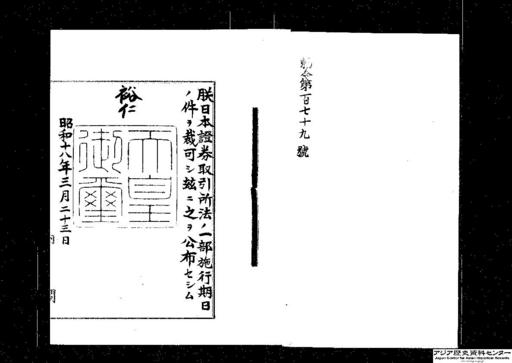 勅令第百七十九號
朕日本證券取引所法ノ一部施行期日
ノ件ヲ裁可シ玆ニ之ヲ公布セシム
裕仁
天皇
御璽
昭和十八年三月二十三日
アジア歴史資料センター
Japan Center for Asian Historical Records